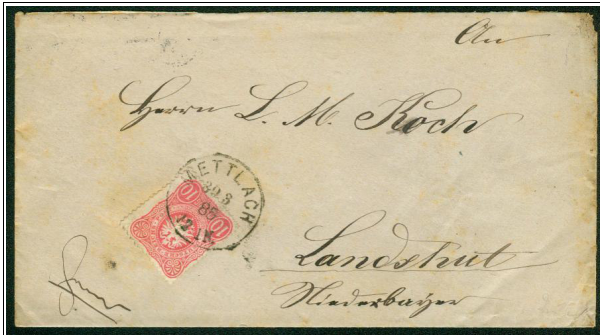 An
Herrn L. M. Koch
METTLACH
30 8
86
12 1N.
10 10
Landshut
Niederbayern